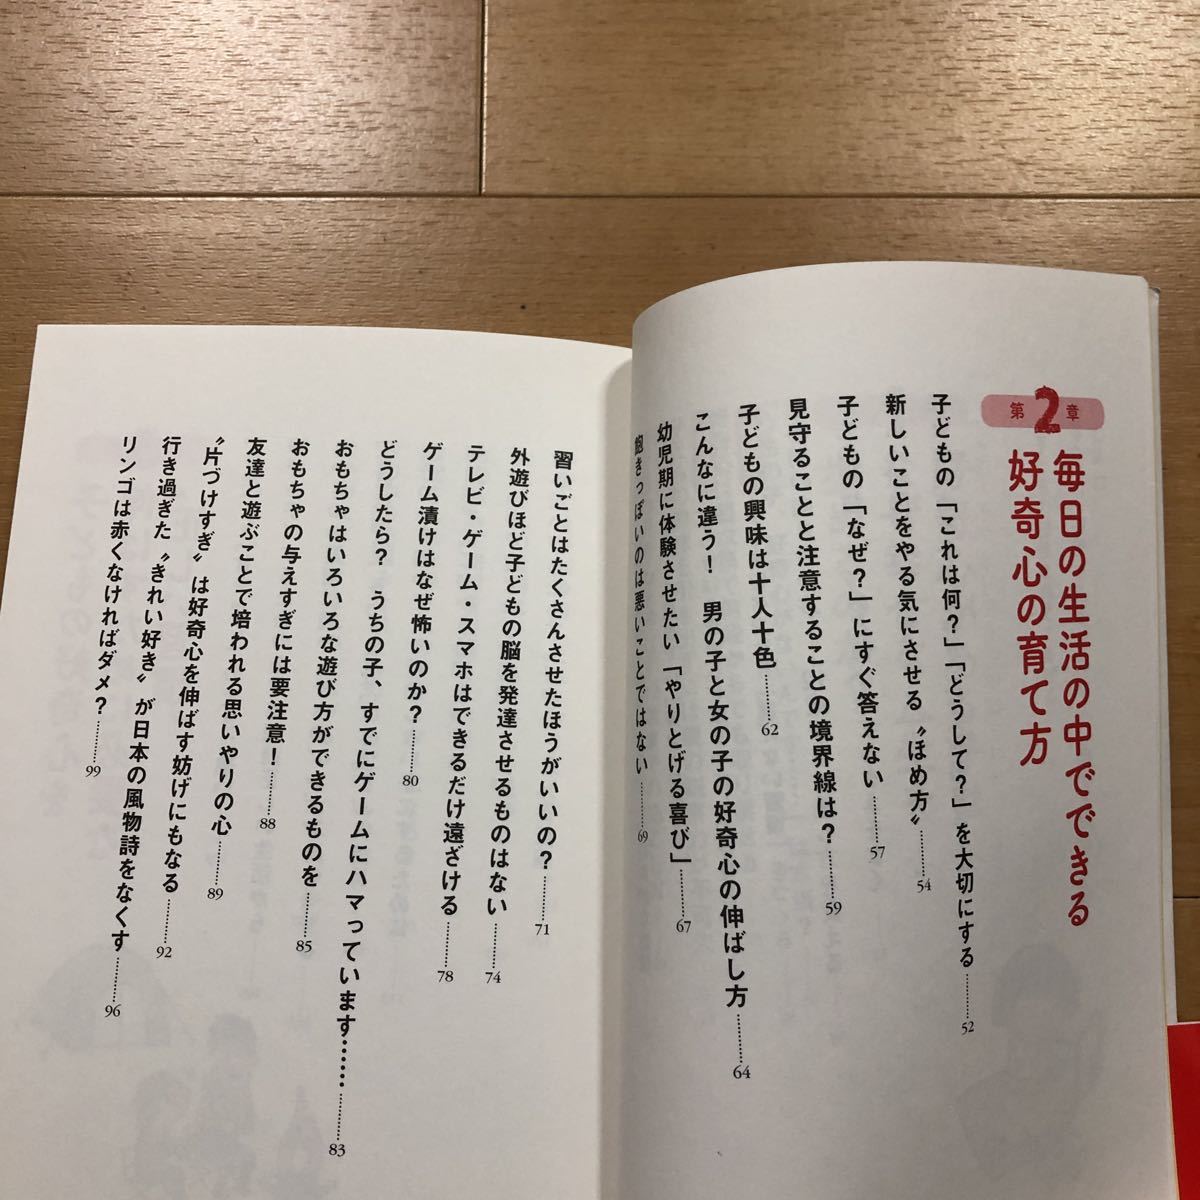 第2章
毎日の生活の中でできる
好奇心の育て方
子どもの「これは何?」「どうして?」を大切にする……52
新しいことをやる気にさせる〝ほめ方〟……54
子どもの「なぜ?」にすぐ答えない……57
見守ることと注意することの境界線は?……59
子どもの興味は十人十色……62
こんなに違う! 男の子と女の子の好奇心の伸ばし方……64
幼児期に体験させたい「やりとげる喜び」……67
飽きっぽいのは悪いことではない……69
習いごとはたくさんさせたほうがいいの?……71
外遊びほど子どもの脳を発達させるものはない……74
テレビ・ゲーム・スマホはできるだけ遠ざける……78
ゲーム漬けはなぜ怖いのか?……80
どうしたら? うちの子、すでにゲームにハマっています……83
おもちゃはいろいろな遊び方ができるものを……85
おもちゃの与えすぎには要注意!……88
友達と遊ぶことで培われる思いやりの心……89
〝片づけすぎ〟は好奇心を伸ばす妨げにもなる……92
行き過ぎた〝きれい好き〟が日本の風物詩をなくす……96
リンゴは赤くなければダメ?……99